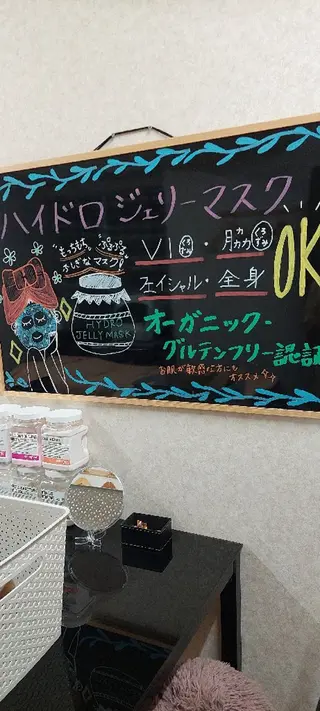 ハイドロジェリーマスク
もっちもち ぷるぷる
ふしぎなマスク!
VIO くろずみ・脇 くろずみ OK
フェイシャル・全身
HYDRO
JELLY MASK
オーガニック・
グルテンフリー認証
お肌が敏感な方にも
オススメ